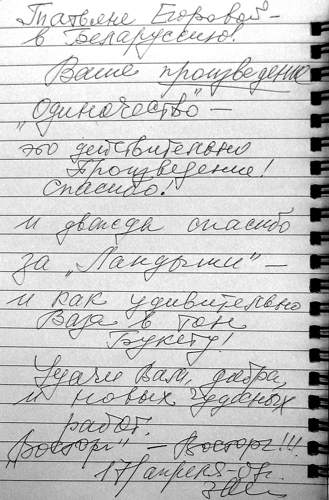 Татьяне Егоровой –
в Беларуссию!
Ваше произведение
„Одиночество" –
это действительно
Произведение!
Спасибо!
и дважды спасибо
за „Ландыши" –
и как удивительно
Ваза в тон
Букету!
Удачи Вам, добра,
и новых чудесных
работ.
„Восторг" – Восторг!!!
17/апреля-09г.